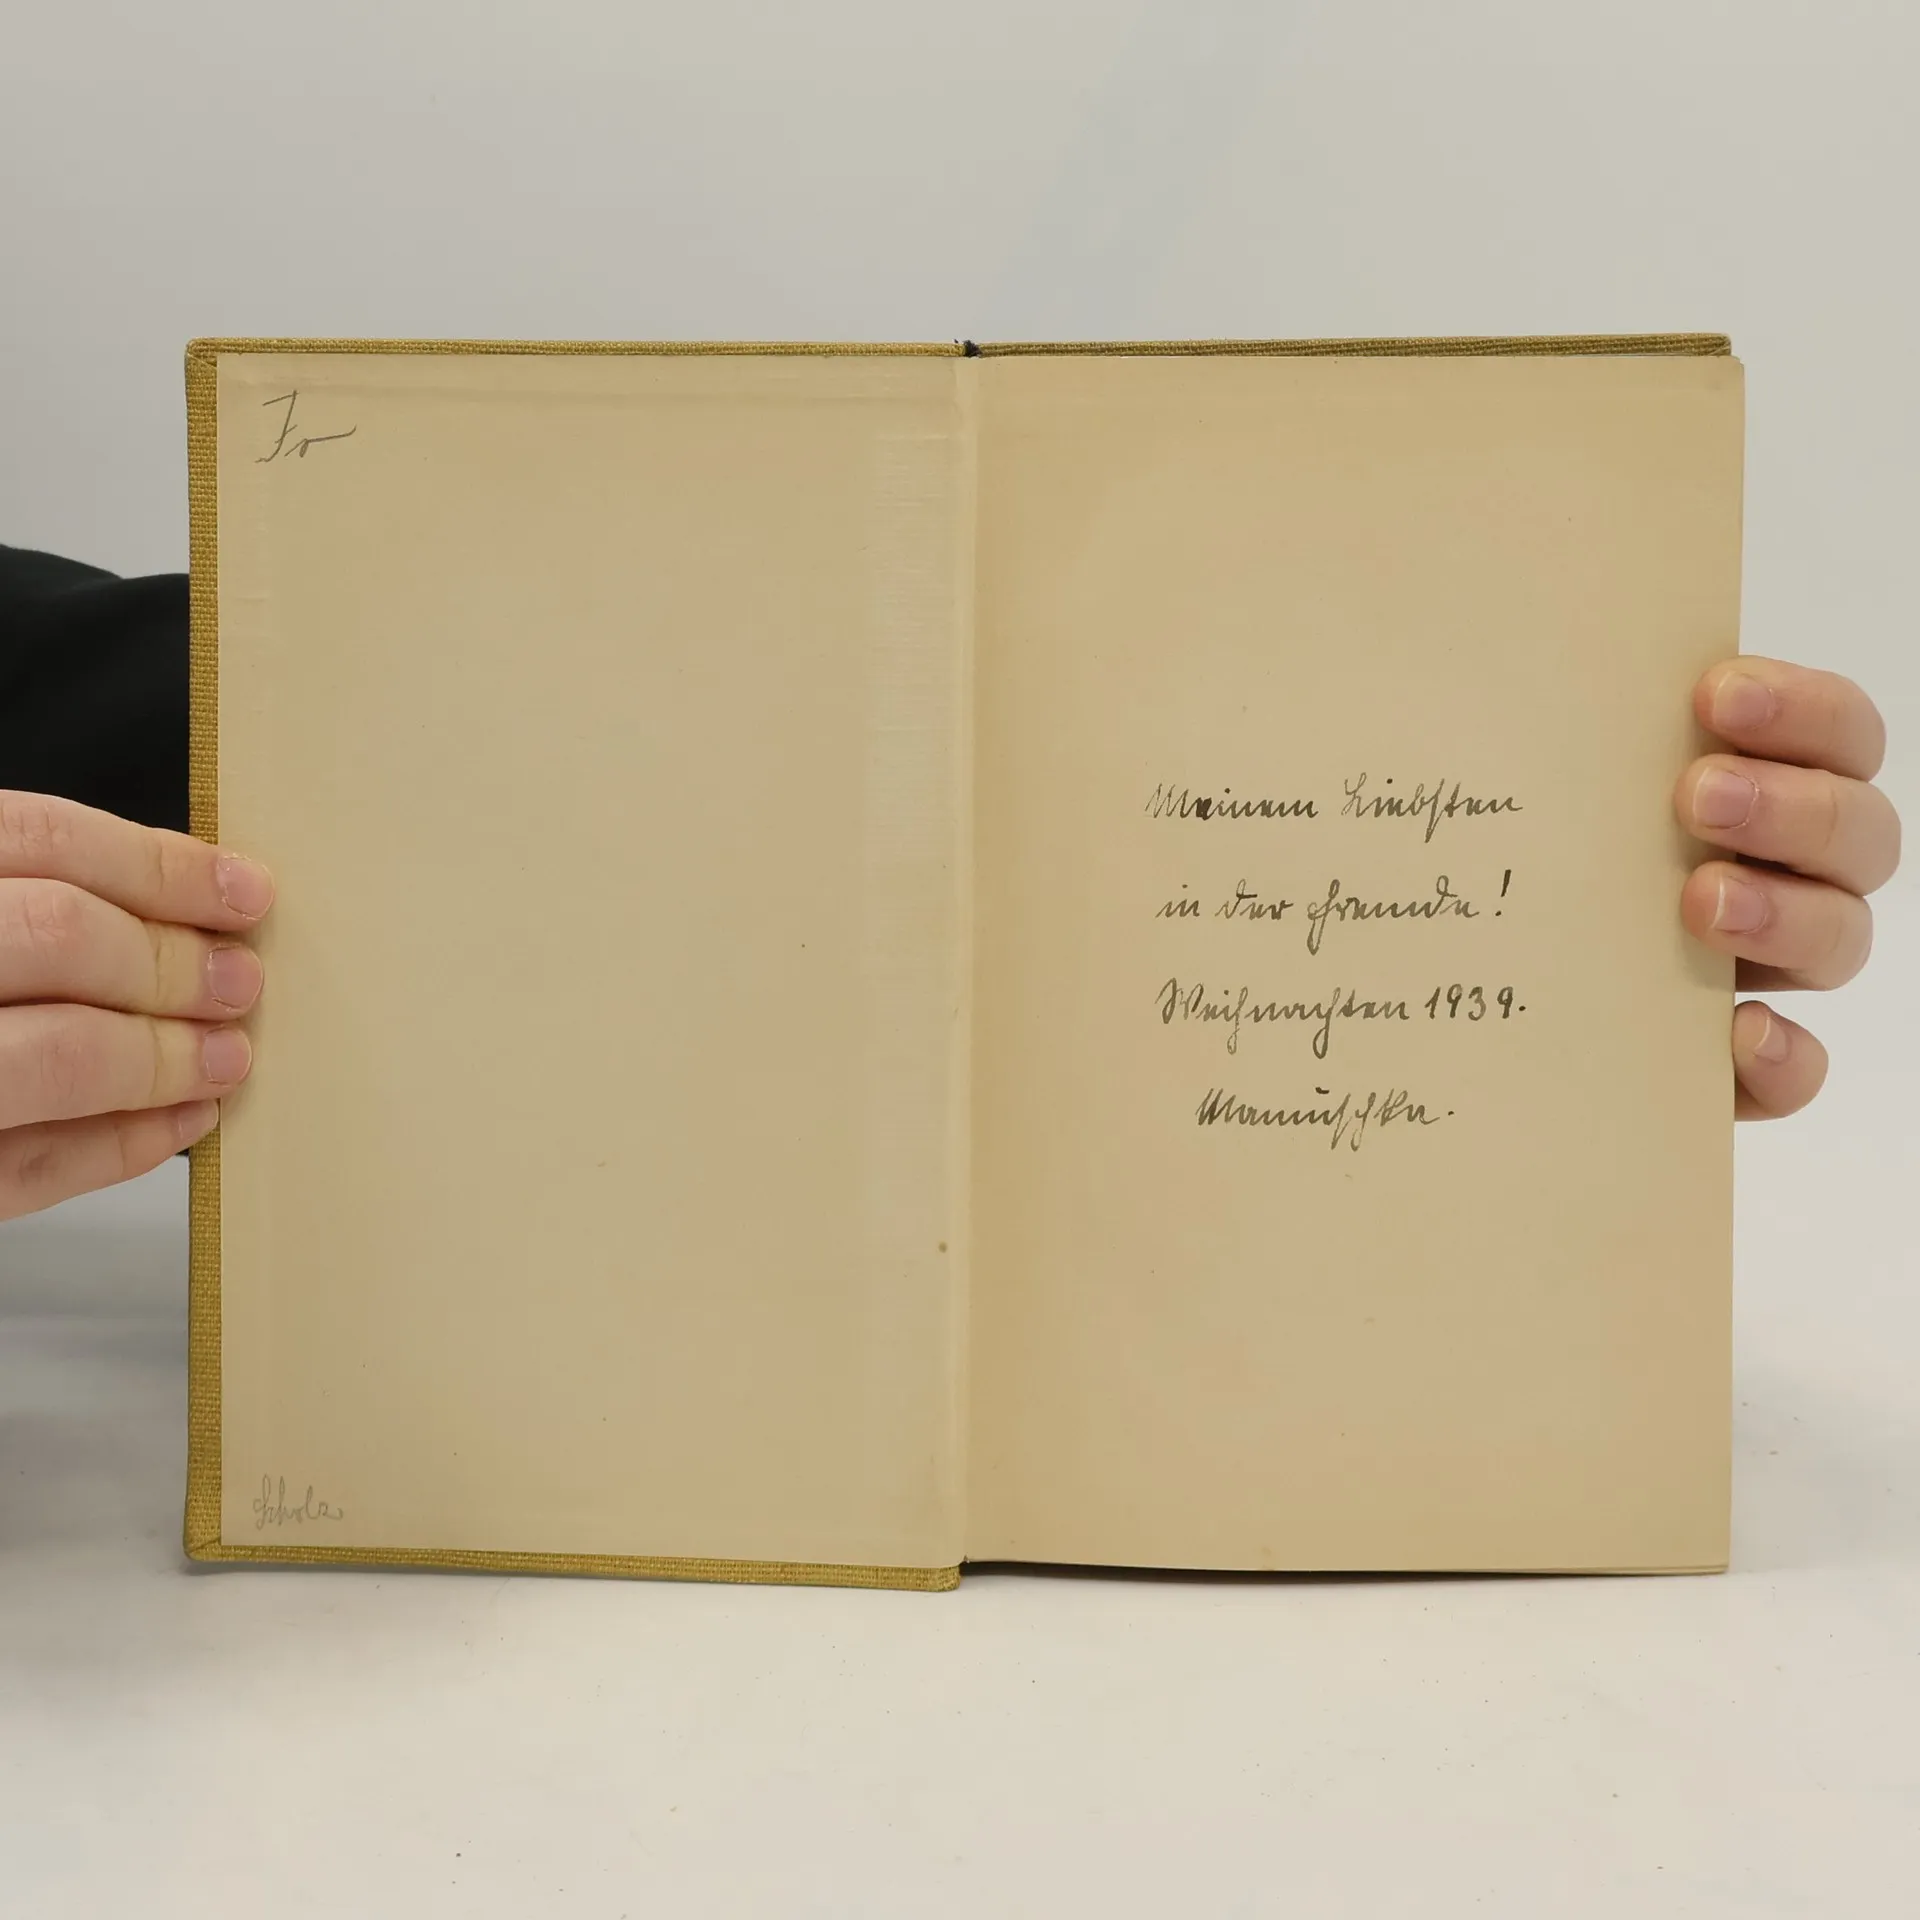 Fr
Meinem Liebsten
in der Fremde!
Weihnachten 1939.
Scholz